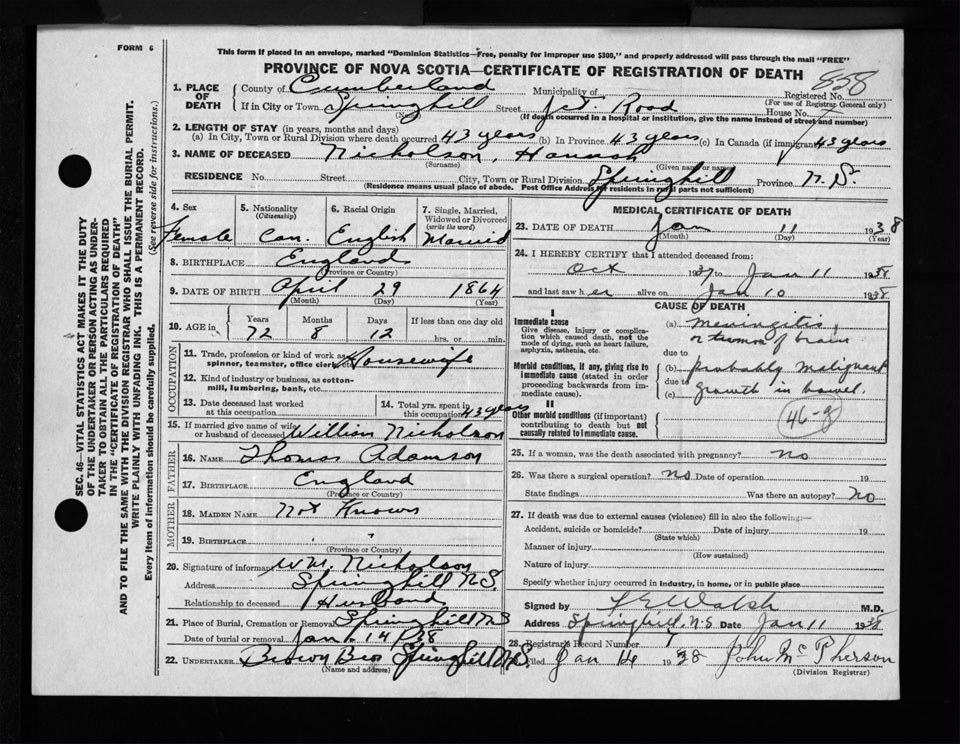 FORM 6
This form if placed in an envelope, marked "Dominion Statistics—Free, penalty for improper use $300," and properly addressed will pass through the mail "FREE"
PROVINCE OF NOVA SCOTIA—CERTIFICATE OF REGISTRATION OF DEATH
858
1. PLACE OF DEATH
County of Cumberland Municipality of Registered No.
(For use of Registrar General only)
If in City or Town Springhill Street Jct. Road House No.
(Name) (If death occurred in a hospital or institution, give the name instead of street and number)
2. LENGTH OF STAY (in years, months and days)
(a) In City, Town or Rural Division where death occurred 43 years (b) In Province 43 years (c) In Canada (if immigrant) 43 years
3. NAME OF DECEASED Nicholson, Hannah
(Surname) (Given name or names)
RESIDENCE No. Street City, Town or Rural Division Springhill Province N.S.
(Residence means usual place of abode. Post Office Address for residents in rural parts not sufficient)
4. Sex 5. Nationality (Citizenship) 6. Racial Origin 7. Single, Married, Widowed or Divorced (write the word)
Female Can. English Married
8. BIRTHPLACE England
(Province or Country)
9. DATE OF BIRTH April 29 1864
(Month) (Day) (Year)
10. AGE in Years Months Days If less than one day old
72 8 12 hrs. or min.
OCCUPATION
11. Trade, profession or kind of work as spinner, teamster, office clerk, etc. Housewife
12. Kind of industry or business, as cotton-mill, lumbering, bank, etc.
13. Date deceased last worked at this occupation 14. Total yrs. spent in this occupation 43 years
15. If married give name of wife or husband of deceased William Nicholson
FATHER
16. NAME Thomas Adamson
17. BIRTHPLACE England
(Province or Country)
MOTHER
18. MAIDEN NAME Not Known
19. BIRTHPLACE " "
(Province or Country)
20. Signature of informant Wm. Nicholson
Address Springhill N.S.
Relationship to deceased Husband
21. Place of Burial, Cremation or Removal Springhill N S
Date of burial or removal Jan. 14 1938
22. UNDERTAKER Brown Bros Springhill N.S
(Name and address)
MEDICAL CERTIFICATE OF DEATH
23. DATE OF DEATH Jan 11 1938
(Month) (Day) (Year)
24. I HEREBY CERTIFY that I attended deceased from:
Oct 1937 to Jan 11 1938
and last saw her alive on Jan 10 1938
CAUSE OF DEATH
I
Immediate cause
Give disease, injury or complication which caused death, not the mode of dying, such as heart failure, asphyxia, asthenia, etc.
(a) Meningitis,
or tumor of brain
due to
Morbid conditions, if any, giving rise to immediate cause (stated in order proceeding backwards from immediate cause).
(b) probably malignant
due to
(c) growth in bowel.
II
Other morbid conditions (if important) contributing to death but not causally related to immediate cause.
46-g
25. If a woman, was the death associated with pregnancy? no
26. Was there a surgical operation? no Date of operation 19
State findings Was there an autopsy? no
27. If death was due to external causes (violence) fill in also the following:—
Accident, suicide or homicide? Date of injury 19
(State which)
Manner of injury
(How sustained)
Nature of injury
Specify whether injury occurred in industry, in home, or in public place
Signed by F E Walsh M.D.
Address Springhill, N.S Date Jan 11 1938
28. Registrar's Record Number 7
Filed Jan 14 1938 John McPherson
(Division Registrar)
SEC. 46—VITAL STATISTICS ACT MAKES IT THE DUTY
OF THE UNDERTAKER OR PERSON ACTING AS UNDER-
TAKER TO OBTAIN ALL THE PARTICULARS REQUIRED
IN THE "CERTIFICATE OF REGISTRATION OF DEATH"
AND TO FILE THE SAME WITH THE DIVISION REGISTRAR WHO SHALL ISSUE THE BURIAL PERMIT.
WRITE PLAINLY WITH UNFADING INK. THIS IS A PERMANENT RECORD.
Every item of information should be carefully supplied. (See reverse side for instructions.)